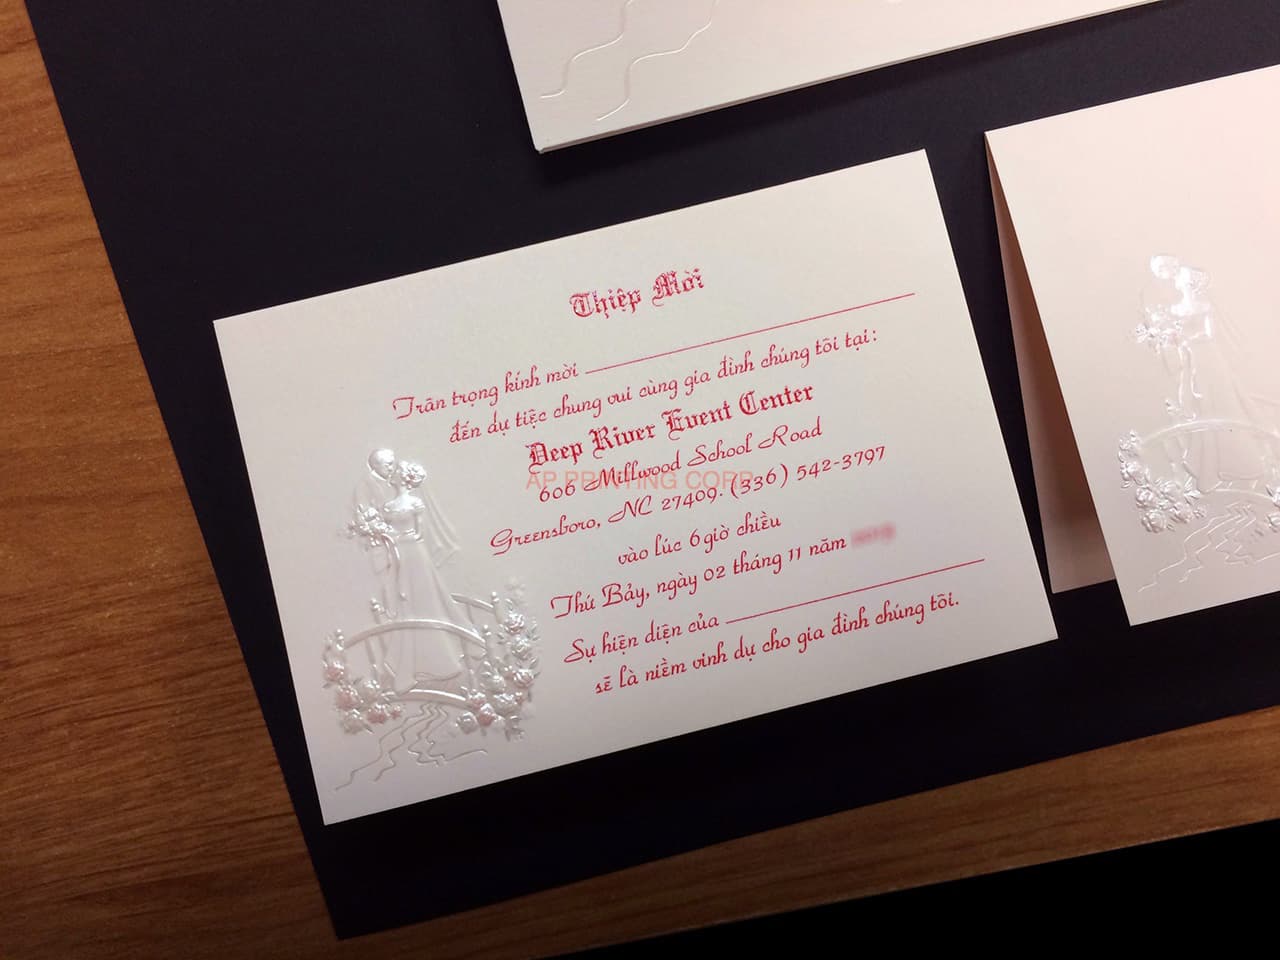 Thiệp Mời
Trân trọng kính mời
đến dự tiệc chung vui cùng gia đình chúng tôi tại:
Deep River Event Center
606 Millwood School Road
AP PRINTING CORP
Greensboro, NC 27409. (336) 542-3797
vào lúc 6 giờ chiều
Thứ Bảy, ngày 02 tháng 11 năm
Sự hiện diện của
sẽ là niềm vinh dự cho gia đình chúng tôi.